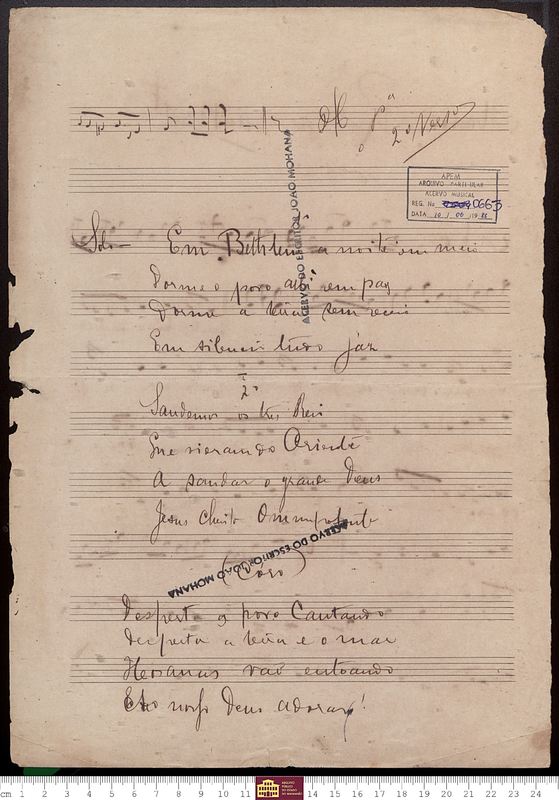 2º Verso
APEM
ARQUIVO PARTICULAR
ACERVO MUSICAL
REG. No 0663
DATA
ACERVO DO ESCRITOR JOÃO MOHANA
Solo — Em Bethlem a noite em meio
Dorme o povo ali em paz
Dorme a terra sem receio
Em silencio tudo jaz
2º
Saudemos os tres Reis
Que vieram do Oriente
A saudar o grande Deus
Jesus Christo Omnipotente
ACERVO DO ESCRITOR JOÃO MOHANA
(Coro)
Desperta o povo Cantando
desperta a terra e o mar
Hosanas vai entoando
nosso Deus adorar!
cm 1 2 3 4 5 6 7 8 9 10 11 14 15 16 17 18 19 20 21 22 23 24